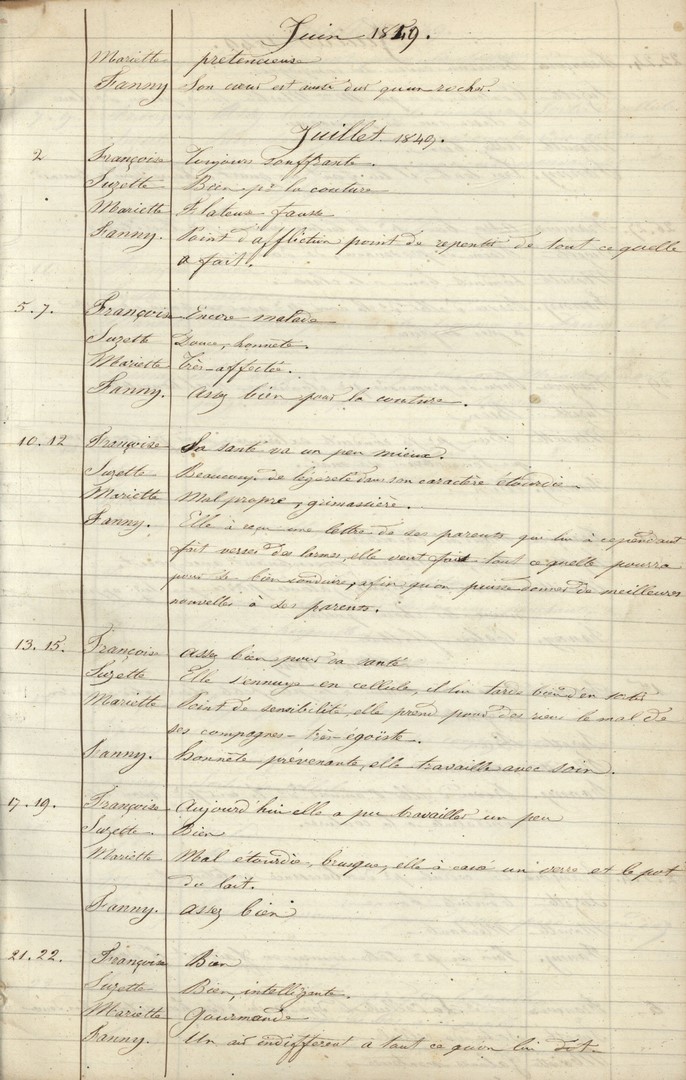 Juin 1849.
Mariette prétencieuse
Fanny Son cœur est aussi dur qu'un rocher.
Juillet 1849.
2 Françoise toujours souffrante.
Suzette Bien pr la couture
Mariette Flateuse fausse
Fanny. Point d'affliction point de repentir de tout ce quelle
a fait.
5.7. Françoise Encore malade
Suzette Douce, honnete.
Mariette très-affectée.
Fanny. assez bien pour la couture.
10.12 Françoise Sa santé va un peu mieux.
Suzette Beaucoup de légereté dans son caractère étourdie
Mariette Mal propre, grimassière.
Fanny. Elle à reçu une lettre de ses parents qui lui à cependant
fait verser des larmes, elle veut fait tout ce quelle pourra
pour bien conduire, afin qu'on puisse donner de meilleures
nouvelles à ses parents.
13.15. Françoise assez bien pour sa santé
Suzette Elle s'ennuye en cellule, il lui tarde d'en
Mariette Point de sensibilité, elle prend pour des riens le mal de
ses compagnes - très-egoïste.
Fanny. honnête prévenante, elle travaille avec soin.
17.19. Françoise Aujourd'hui elle a pu travailler un peu
Suzette. Bien
Mariette Mal étourdie, brusque, elle à cassé un verre et le pot
du lait.
Fanny. assez bien
21.22. Françoise Bien
Suzette Bien, intelligente.
Mariette Gourmande
Fanny. Un air indifferent a tout ce qu'on lui dit